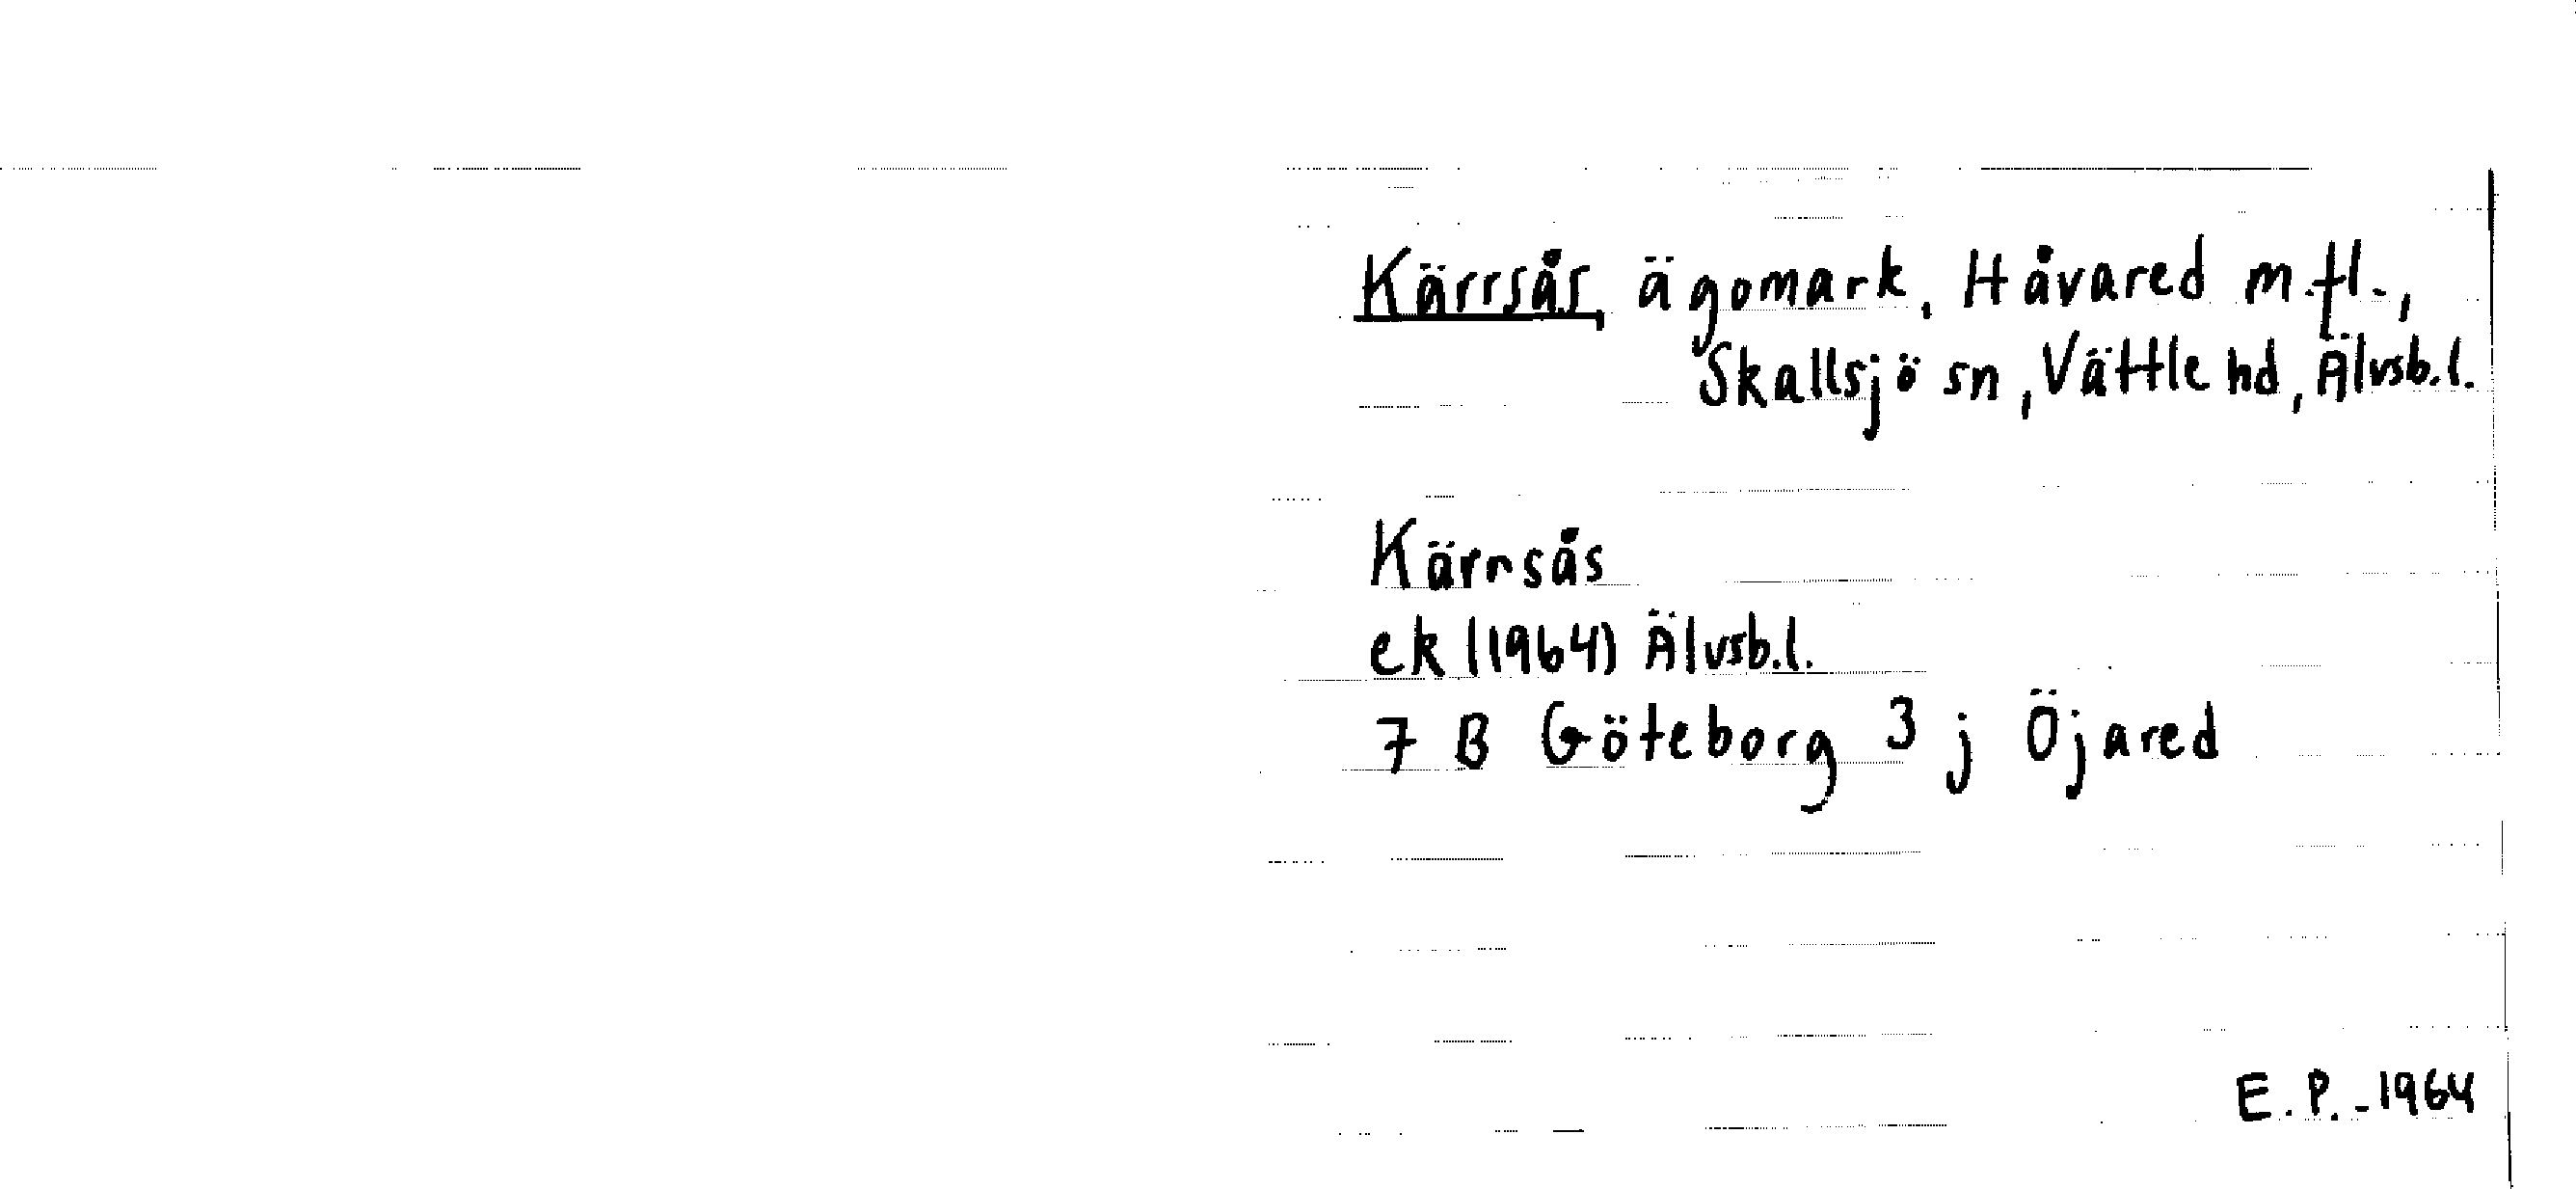 Kärrsås, ägomark, Håvared m.fl.,
Skallsjö sn, Vättle hd, Älvsb.l.
Kärnsås
ek (1964) Älvsb.l.
7 B Göteborg 3 j Öjared
E.P.-1964